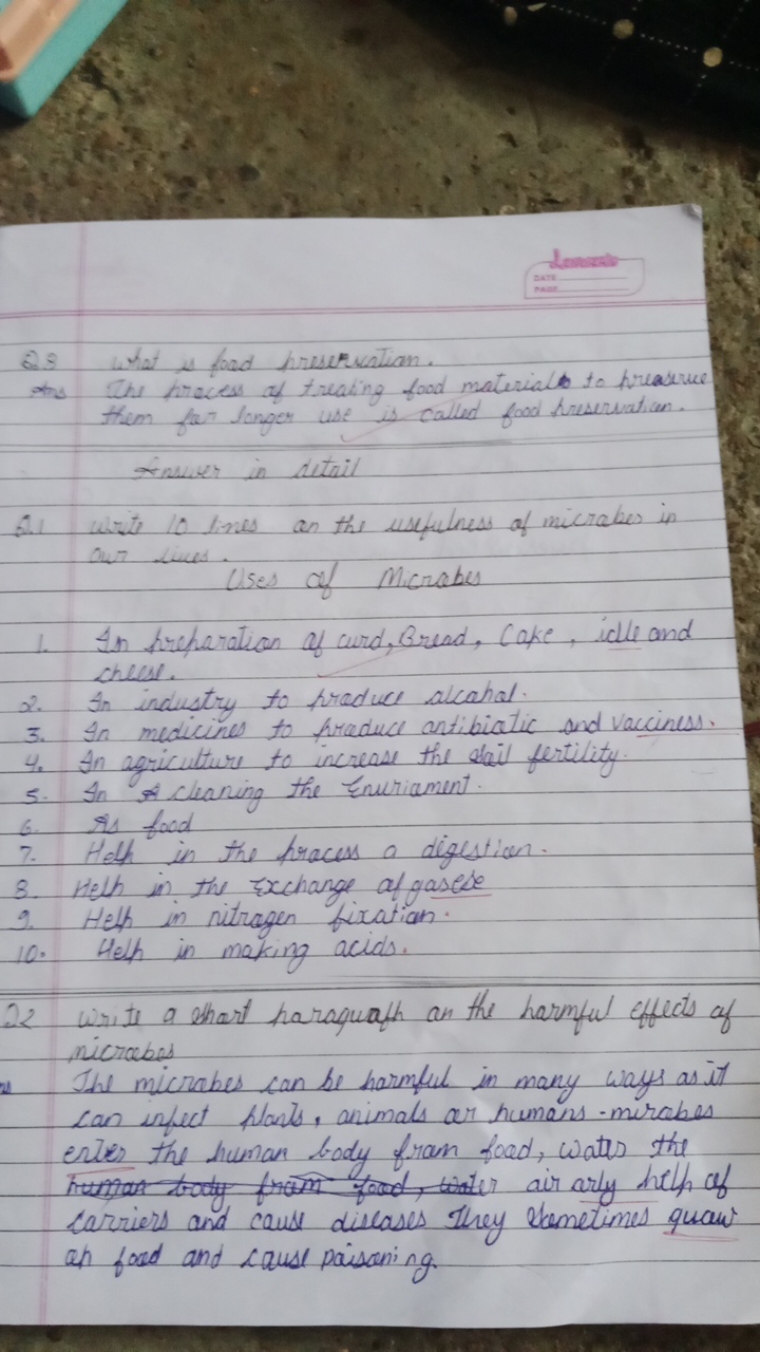 Lamento
DATE
PAGE
Q3 What is food preservation.
Ans The process of treating food materials to preaserve
them for longer use is called food preservation.
Answer in detail
Q.1 Write 10 lines on the usefulness of microbes in
our lives.
Uses of Microbes
1. In preparation of curd, Bread, Cake, idle and
cheese.
2. In industry to produce alcohal.
3. In medicines to produce antibiotic and vacciness.
4. In agriculture to increase the soil fertility.
5. In cleaning the Enuriament.
6. As food
7. Help in the process o digestion.
8. Help in the Exchange of gasese
9. Help in nitrogen fixation.
10. Help in making acids.
Q2 Write a short paraguaph on the harmful effects of
microbes
The microbes can be harmful in many ways as it
can infect plants, animals or humans - mirobes
enter the human body from food, water the
human body from food, water air arly help of
carriers and cause diseases They sometimes quow
on food and cause poisoning.